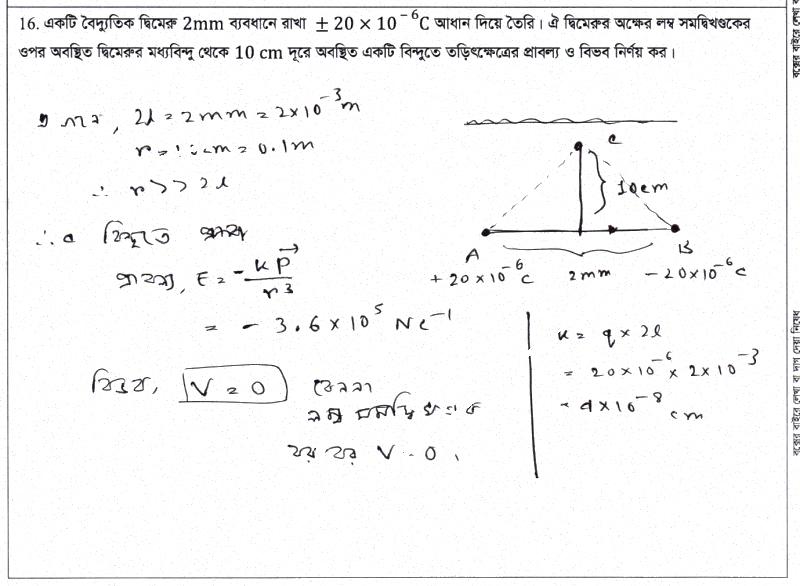 16. একটি বৈদ্যুতিক দ্বিমেরু 2mm ব্যবধানে রাখা ± 20 × 10⁻⁶C আধান দিয়ে তৈরি। ঐ দ্বিমেরুর অক্ষের লম্ব সমদ্বিখণ্ডকের
ওপর অবস্থিত দ্বিমেরুর মধ্যবিন্দু থেকে 10 cm দূরে অবস্থিত একটি বিন্দুতে তড়িৎক্ষেত্রের প্রাবল্য ও বিভব নির্ণয় কর।
2l = 2mm = 2×10⁻³m
r = 10cm = 0.1m
∴ r >> 2l
∴ বিন্দুতে
প্রাবল্য, E = -kP⃗/r³
= - 3.6 × 10⁵ Nc⁻¹
বিভব, V = 0 কেননা
লম্ব সমদ্বিখণ্ডক
বরাবর V = 0
C
10cm
A B
+20×10⁻⁶C 2mm -20×10⁻⁶C
= q × 2l
= 20×10⁻⁶ × 2×10⁻³
= 4×10⁻⁸ cm
বক্সের বাইরে লেখা বা
বক্সের বাইরে লেখা বা দাগ দেয়া নিষেধ